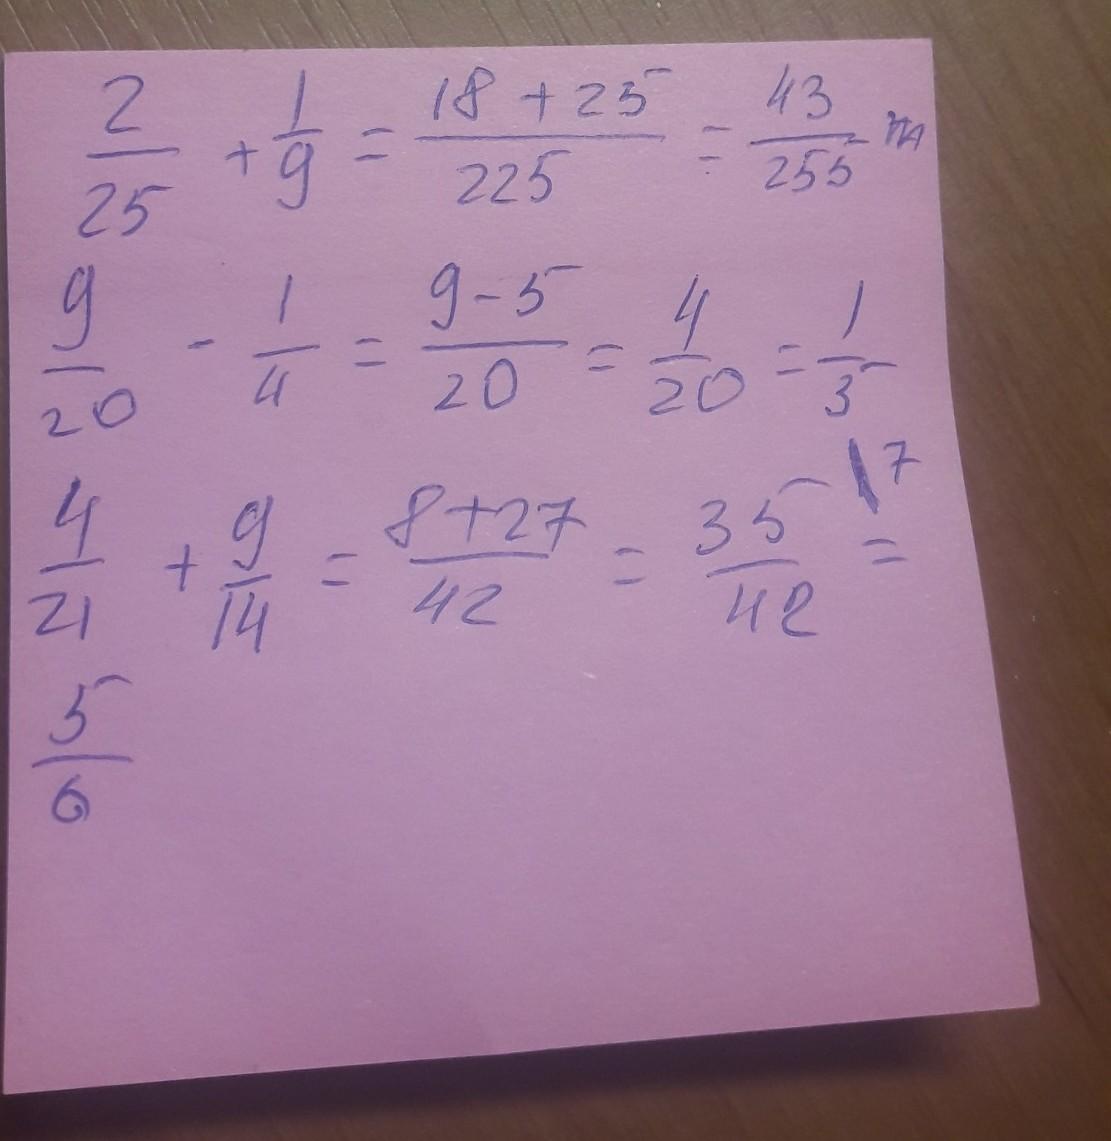 2/25 + 1/9 = 18 + 25/225 = 43/255 m
9/20 - 1/4 = 9 - 5/20 = 4/20 = 1/5
4/21 + 9/14 = 8 + 27/42 = 35/42 \7 =
5/6